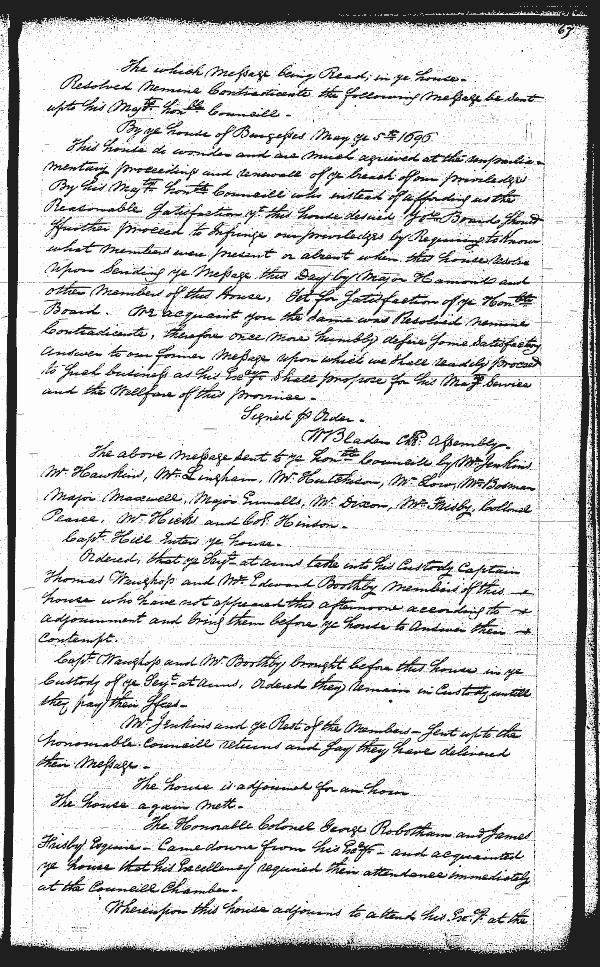 67
The which Message being Read, in ye house.
Resolved Nemine Contradicente the following message be sent
upto his Majtys honble Councill.
By ye house of Burgesses May ye 5th 1696
This house do wonder and are much agrieved at the unparlia-
mentary proceeding and renewall of ye breach of our priviledges
By his Majtys honble Councill who instead of affording us the
Reasonable Satisfaction yt this house desired yor Board should
ffurther proceed to Infringe our priviledges by Requiring to know
what members were present or absent when this house
upon Sending ye Message this Day by Major Hamond and
other Members of this House, Yet for Satisfaction of ye Honble
Board. We acquaint you the same was Resolved nemine
Contradicente, therefore once more humbly desire some Satisfactory
answer to our former Message upon which we shall readily proceed
to such business as his Excy shall propose for his Majtys Service
and the Wellfare of this province.
Signed p Order.
W Bladen Clk Assembly.
The above message sent to ye honble Councill by Mr Jenkins
Mr Hawkins, Mr Lingham, Mr Hutchison, Mr Low, Mr Bosman
Major Maxwell, Major Ennalls, Mr Dixon, Mr Frisby, Collonl
Pearce, Mr Hicks and Col. Hinson.
Capt. Hill Enters ye house.
Ordered, that ye Serjt at arms take into his Custody Captain
Thomas Waughop and Mr. Edward Boothby Members of this
house who have not appeared this afternoone according to
adjournment and bring them before ye house to answer their
Contempt.
Capt. Waughop and Mr. Boothby brought before this house in ye
Custody of ye Serjt at arms, Ordered they remain in Custody untill
they pay their ffees.
Mr Jenkins and ye Rest of the Members sent up to the
honourable Councill returns and say they have delivered
their Message.
The house is adjourned for an hour
The house again mett.
The Honorable Colonel George Robotham and James
Frisby Esquire - Came downe from his Excy - and acquainted
ye house that his Excellency required their attendance immediately
at the Councill Chamber.
Whereupon this house adjourns to attend his Excy at the